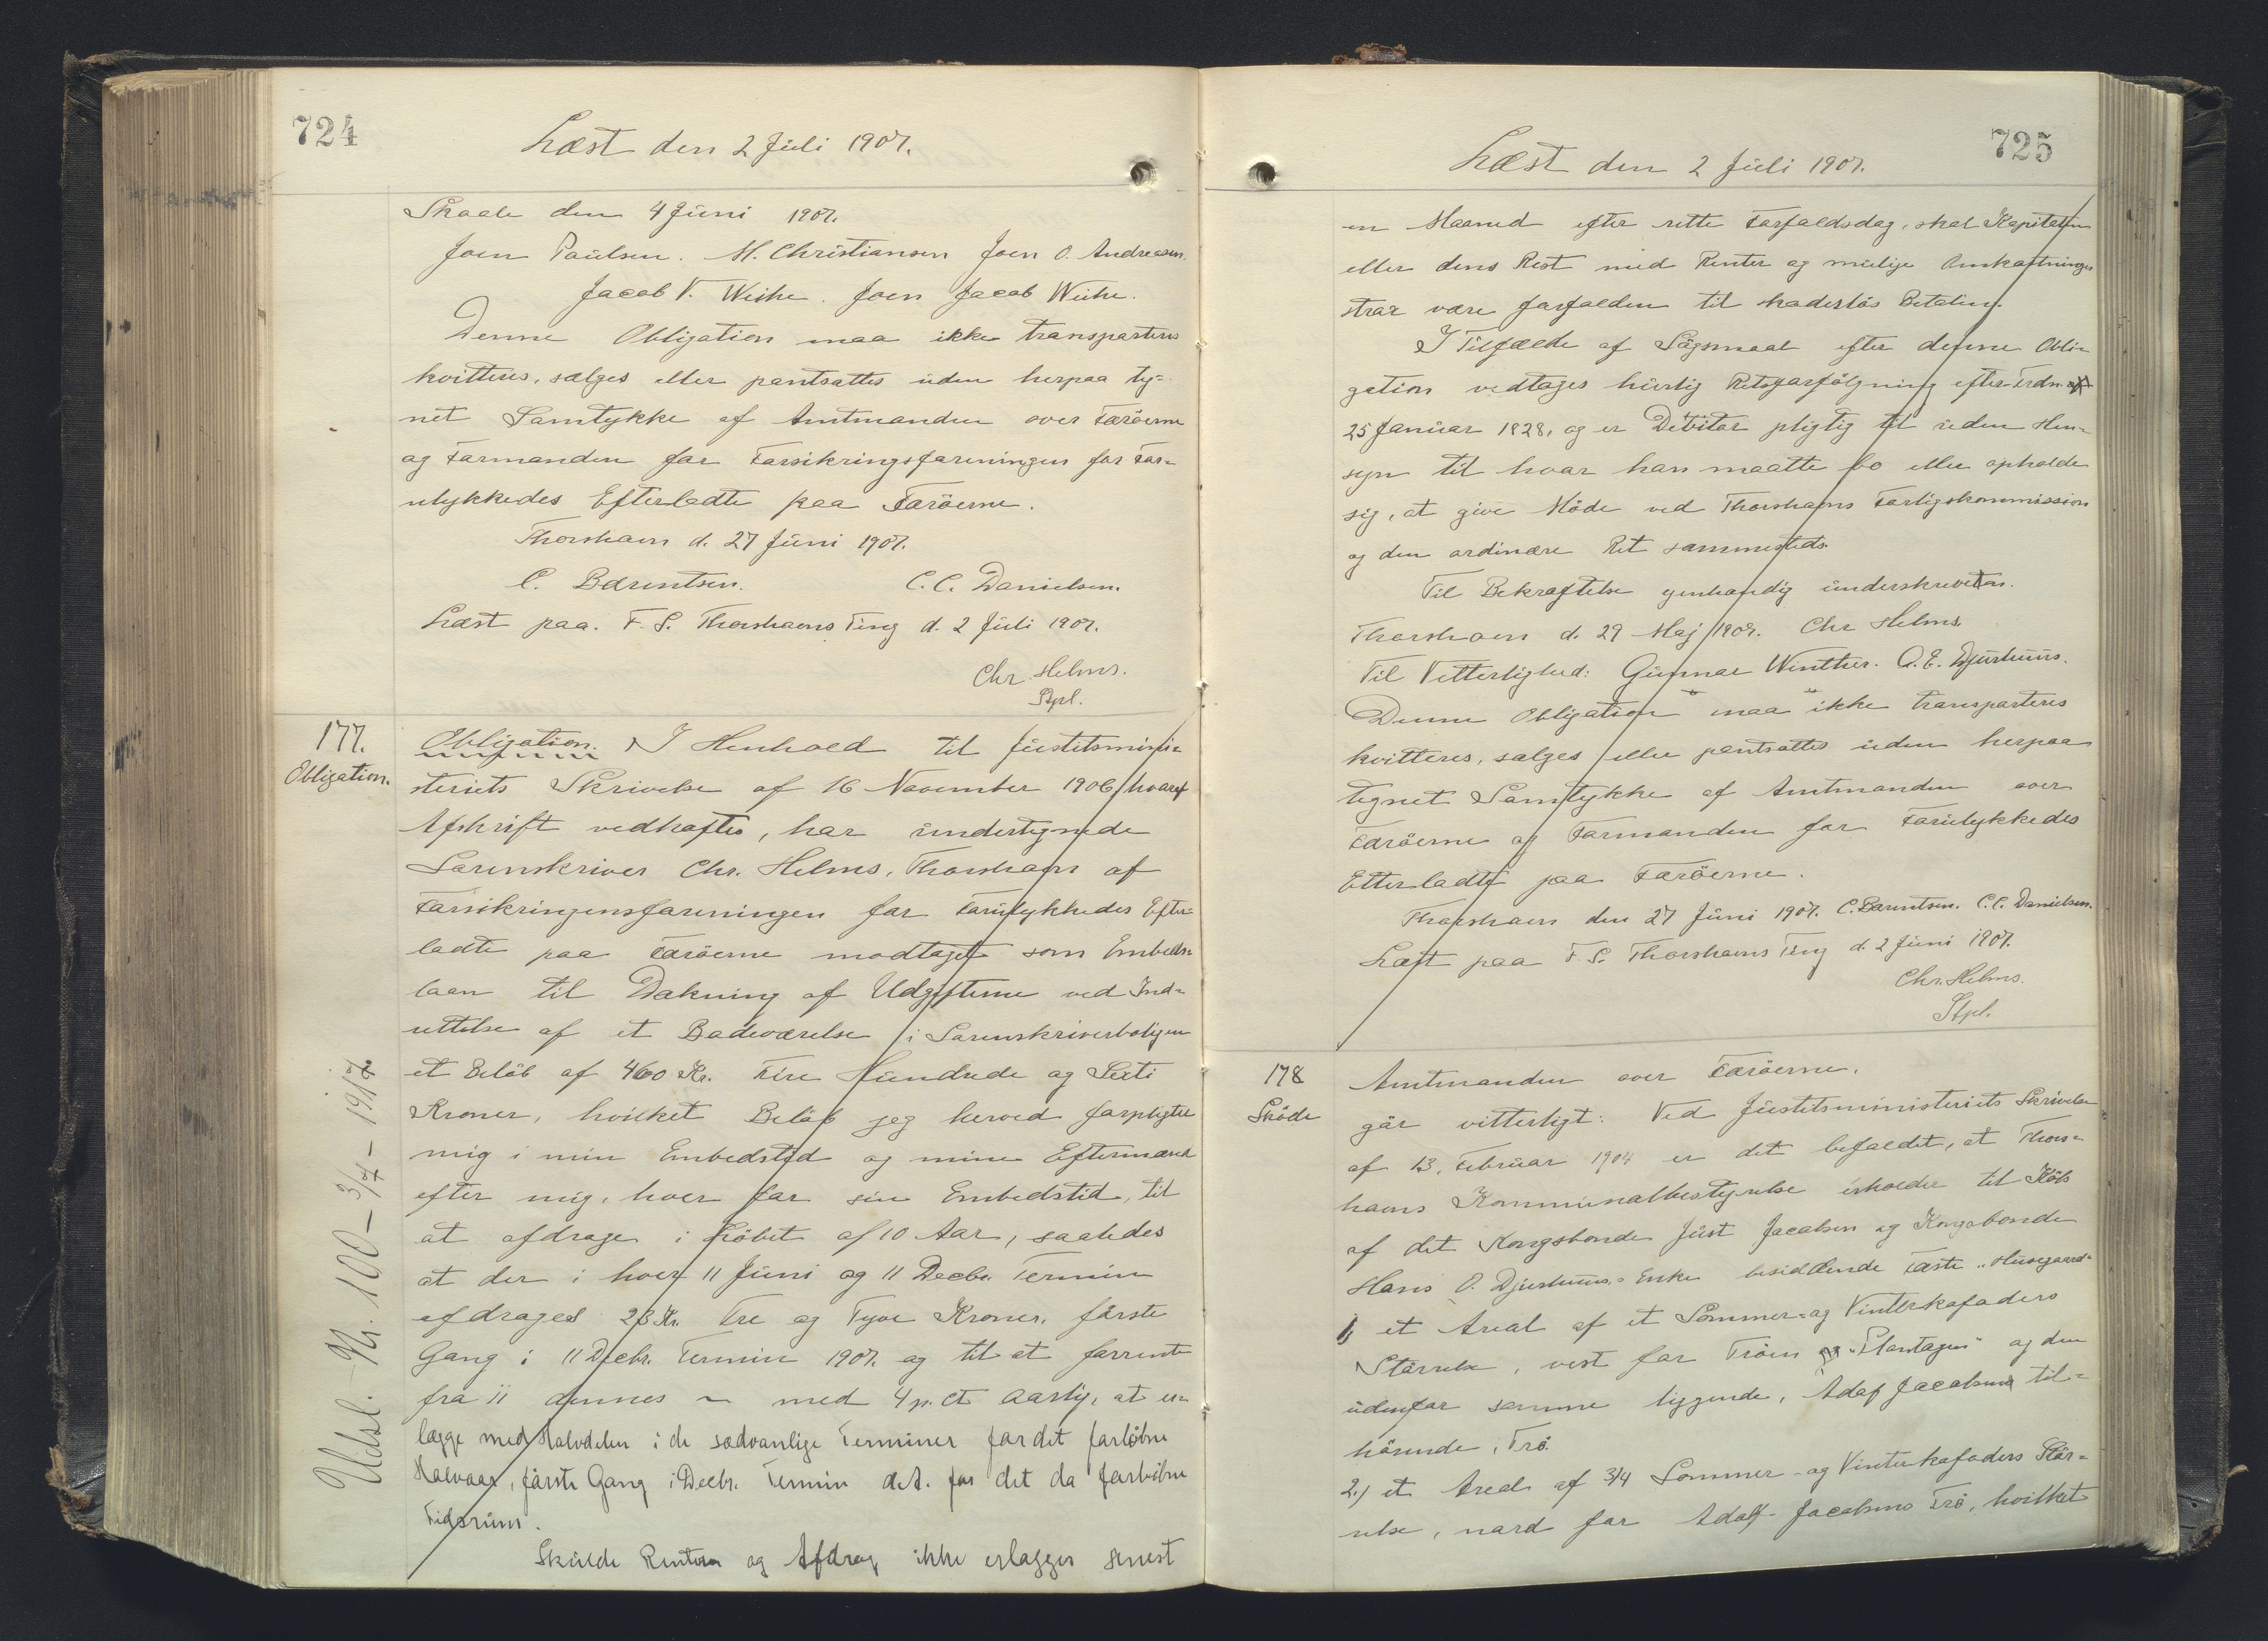 724
Læst den 2 Juli 1907.
Skaale den 4 Juni 1907.
Joen Paulsen. M. Christiansen Joen O. Andreasen.
Jacob V. Weihe. Joen Jacob Weihe.
Denne Obligation maa ikke transporteres
kvitteres, sælges eller pantsættes uden herpaa teg-
net Samtykke af Amtmanden over Færöerne
og Formanden for Forsikringsforeningen for For-
ulykkedes Efterladte paa Færöerne.
Thorshavn d. 27 Juni 1907.
C. Bærentsen. C. C. Danielsen.
Læst paa F. S. Thorshavns Ting d. 2 Juli 1907.
Chr. Helms.
Stpl.
177.
Obligation.
Obligation. I Henhold til Justitsmini-
steriets Skrivelse af 16 November 1906, hvoraf
Afskrift vedhæftes, har undertegnede
Sorenskriver Chr. Helms, Thorshavn af
Forsikringensforeningen for Forulykkedes Efter-
ladte paa Færöerne modtaget som Embeds-
laan til Dækning af Udgifterne ved Ind-
rettelse af et Badeværelse i Sorenskriverboligen
et Belöb af 460 Kr. Fire Hundrede og Seeti
Kroner, hvilket Belöb jeg herved forpligter
mig i min Embedstid og mine Eftermænd
efter mig, hver for sin Embedstid, til
at afdrage i Löbet af 10 Aar, saaledes
at der i hver 11 Juni og 11 Decbr. Termin
afdrages 23 Kr. Tre og Tyve Kroner, förste
Gang i 11 Decbr. Termin 1907. og til at forrente
fra 11 dennes ~ med 4 p. ct aarlig, at er-
lægge med Halvdelen i de sædvanlige Terminer for det forløbne
Halvaar, förste Gang i Decbr. Termin d.A. for det da forløbne
Tidsrum.
Skulde Renten og Afdrag ikke erlægges senest
Udsl. Kr. 100 - 3/4 - 1917
725
Læst den 2 Juli 1907.
en Maaned efter rette Forfaldsdag, skal Kapitalen
eller dens Rest med Renter og mulige Omkostninger
strax være forfalden til skadeslös Betaling.
I Tilfælde af Sögsmaal efter denne Obli-
gation vedtages hurtig Retsforfölgning efter Frdn. af
25 Januar 1828, og er Debitor pligtig til uden Hen-
syn til hvor han maatte bo eller opholde
sig, at give Möde ved Thorshavns Forligskommission
og den ordinære Ret sammesteds.
Til Bekræftelse egenhændig underskreveten.
Thorshavn d. 29 Maj 1907. Chr Helms.
Til Vitterlighed: Gunnar Winther. O. E. Djurhuus.
Denne Obligation maa ikke transporteres
kvitteres, sælges eller pantsættes uden herpaa
tegnet Samtykke af Amtmanden over
Færöerne og Formanden for Forulykkedes
Efterladte paa Færöerne.
Thorshavn den 27 Juni 1907. C. Bærentsen. C. C. Danielsen.
Læst paa F. S. Thorshavns Ting d. 2 Juni 1907.
Chr. Helms.
Stpl.
178
Sköde
Amtmanden over Færöerne.
gör vitterligt: Ved Justitsministeriets Skrivelse
af 13. Februar 1904 er det befaldet, at Thors-
havns Kommunalbestyrelse erholder til Köbs
af det Kongsbonde Just Jacobsen og Kongsbonde
Hans O. Djurhuus's Enke besiddende Fæste "Husegaard"
1, et Areal af et Sommer- og Vinterkofoders
Störrelse, vest for Tröen "Plantagen" og den
udenfor samme liggende, Adolf Jacobsens til-
hörende, Trö.
2.) et Areal af 3/4 Sommer- og Vinterkofoders Stör-
relse, nord for Adolf Jacobsens Trö, hvilket